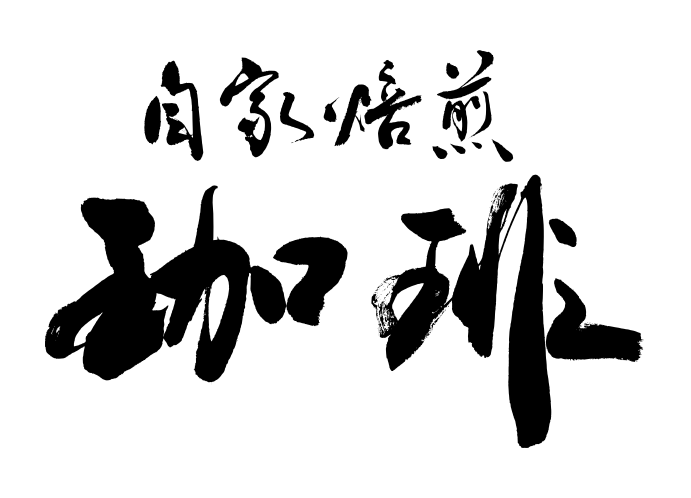 自家焙煎
珈琲